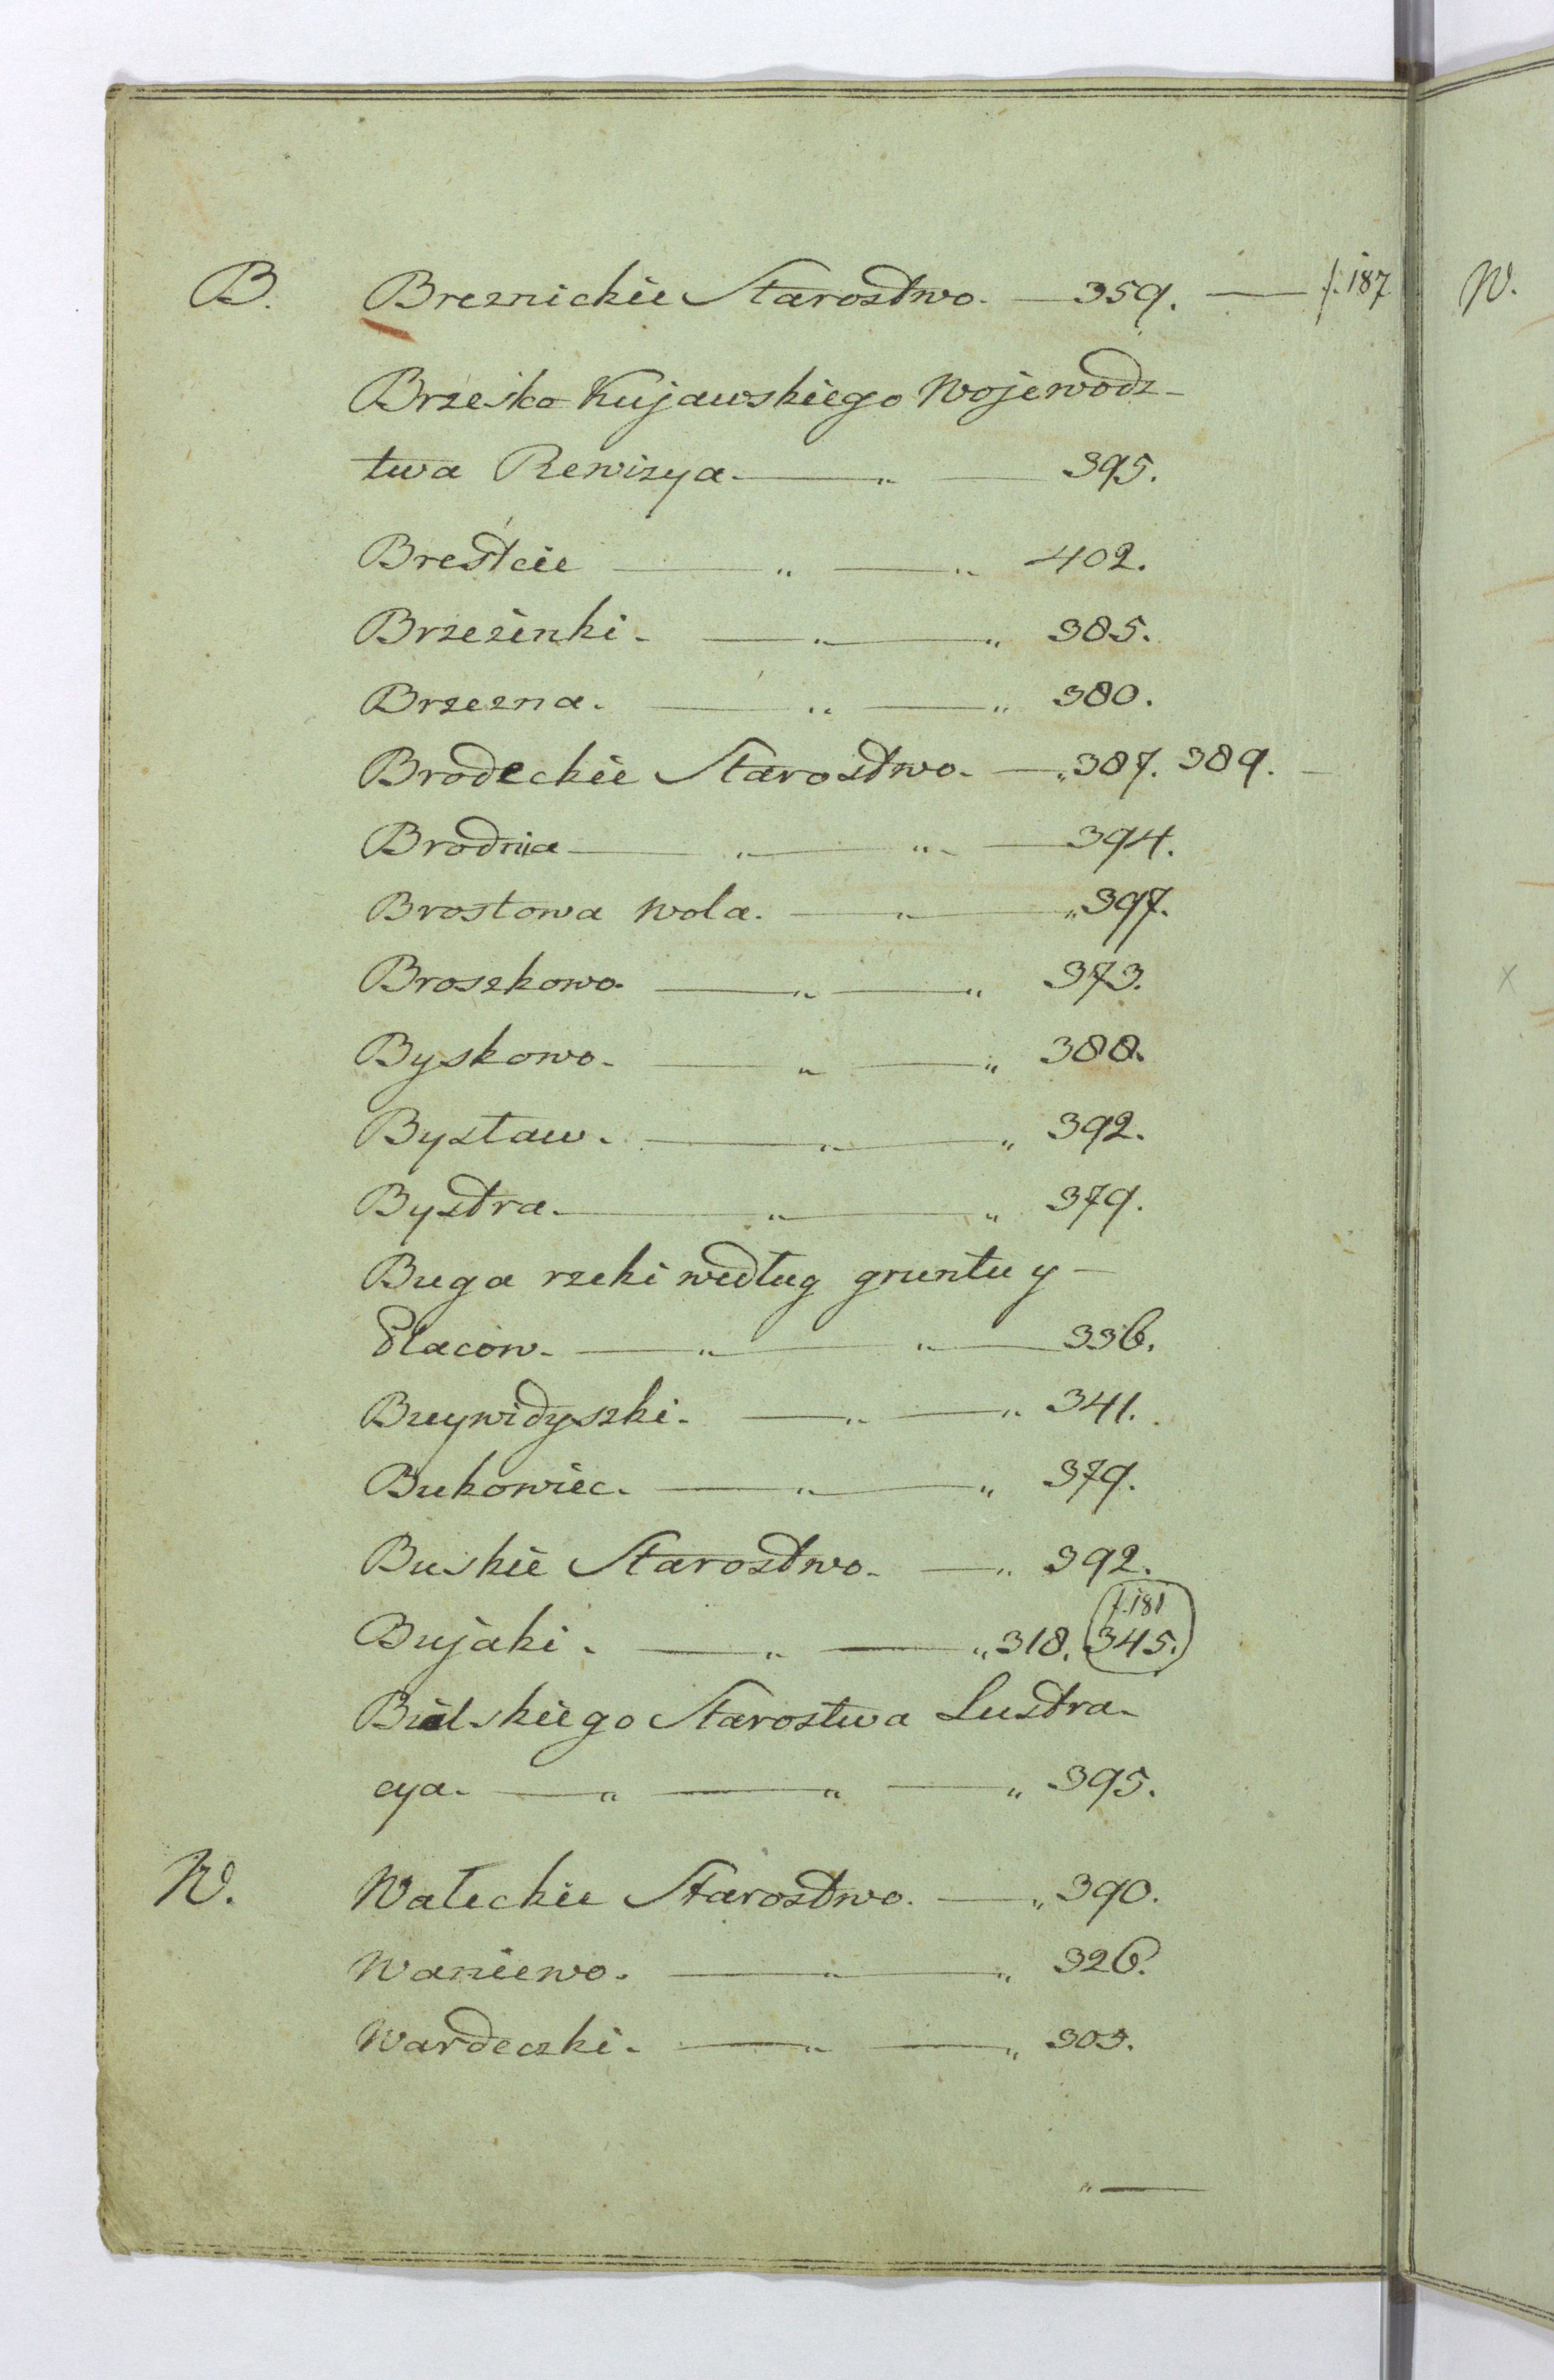 B. Breznickie Starostwo. — 359. — f. 187
Brzesko Kujawskiego Wojewodz-
twa Rewizya. — „ — 395.
Breśtcie — „ — „ 402.
Brzezinki. — „ — „ 385.
Brzezna. — „ — „ 380.
Brodeckie Starostwo. — „ 387. 389. —
Brodnia — „ — „ — 394.
Brostowa Wola. — „ — „ 397.
Broszkowo. — „ — „ 373.
Byskowo. — „ — „ 388.
Bystaw. — „ — „ 392.
Bystra. — „ — „ 379.
Buga rzeki według gruntu y —
Placow. — „ — „ — 336.
Buywidyszki. — „ — „ 341.
Bukowiec. — „ — „ 379.
Buskie Starostwo. — „ 392.
f. 181
Bujaki. — „ — „ 318. 345.
Bielskiego Starostwa Lustra-
cya. — „ — „ — „ 395.
W. Wałeckie Starostwo. — „ 390.
Waniewo. — „ — „ 326.
Wardeczki. — „ — „ 303.
„ —
W.
x